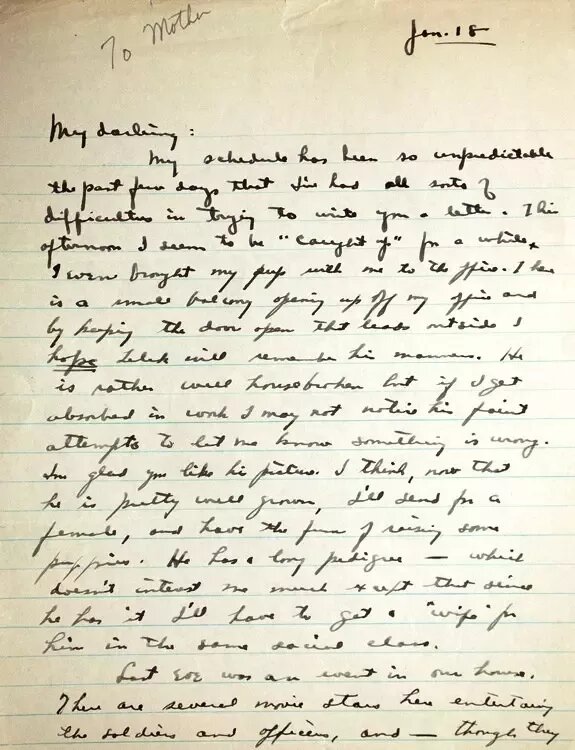 To Mother
Jan. 18
My darling:
My schedule has been so unpredictable
the past few days that I've had all sorts of
difficulties in trying to write you a letter. This
afternoon I seem to be "caught up" for a while.
I even brought my pup with me to the office. There
is a small balcony opening up off my office and
by keeping the door open that leads outside I
hope Telek will remember his manners. He
is rather well housebroken but if I get
absorbed in work I may not notice his faint
attempts to let me know something is wrong.
I'm glad you like his picture. I think, now that
he is pretty well grown, I'll send for a
female, and have the fun of raising some
puppies. He has a long pedigree — which
doesn't interest me much except that since
he has it I'll have to get a "wife" for
him in the same social class.
Last eve was an event in our house.
There are several movie stars here entertaining
the soldiers and officers, and — though they